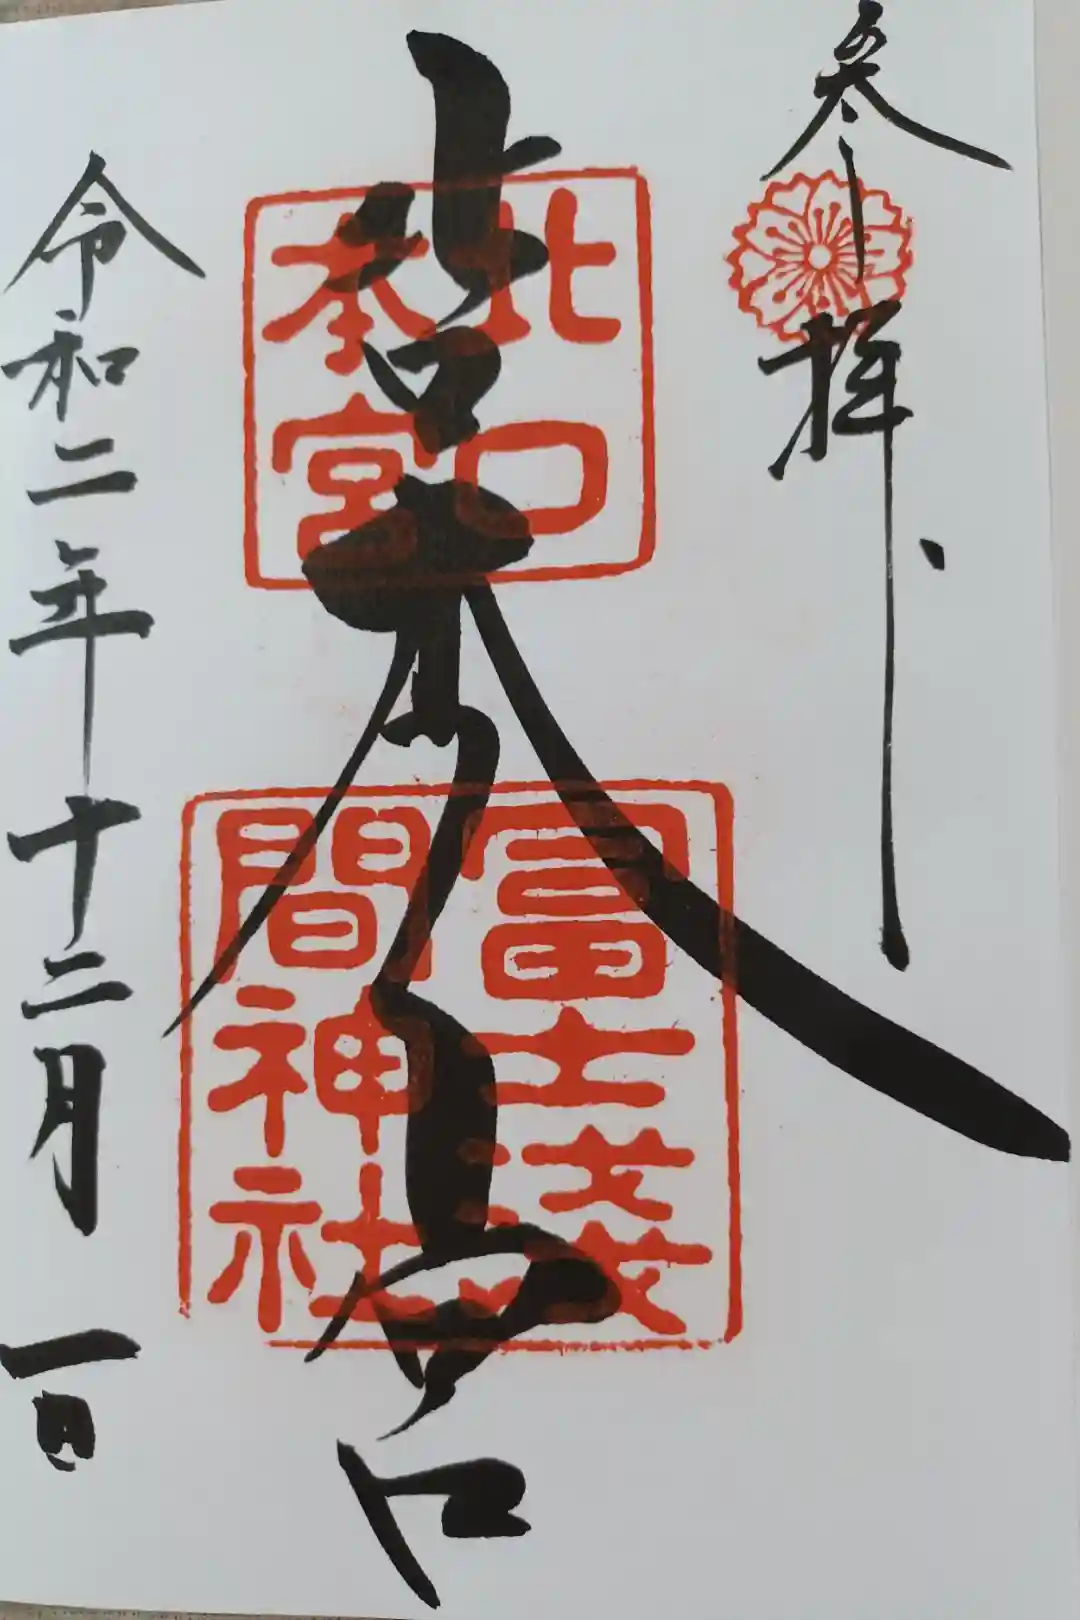 参拝
北口本宮
北口
本宮
冨士淺
間神社
令和二年十二月一日